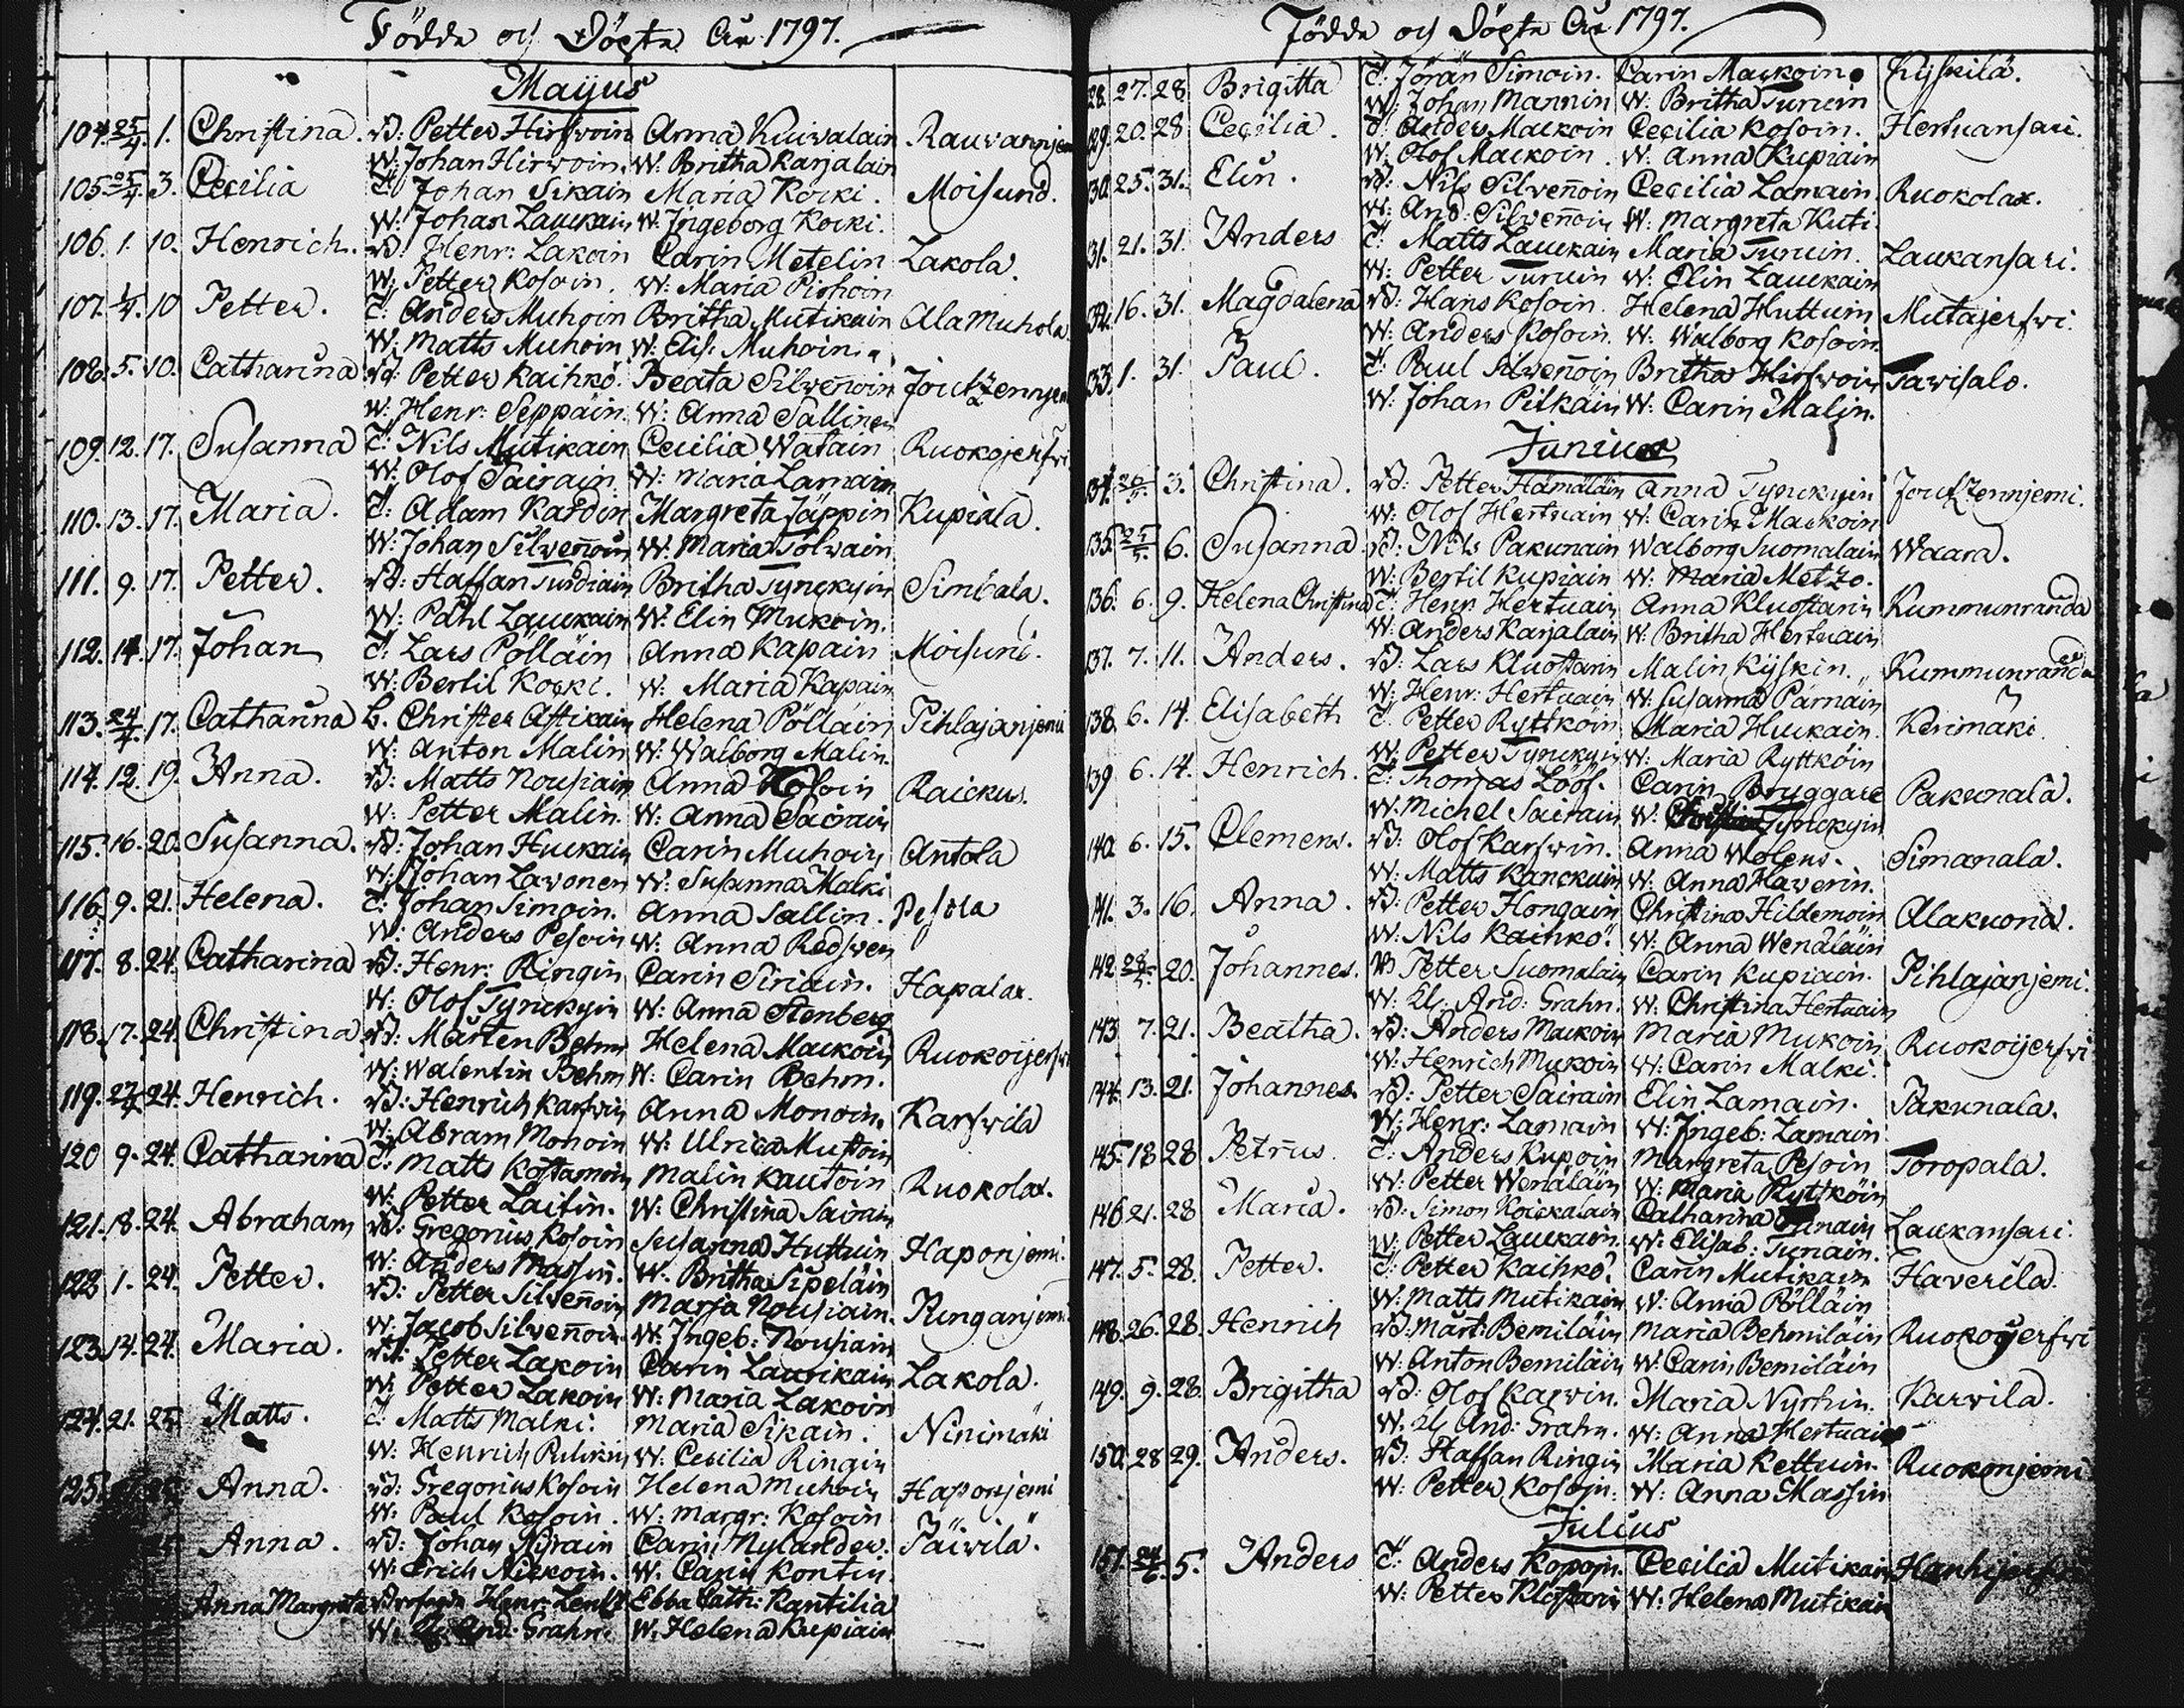 Födde och Döpte Åhr 1797.
Maijus
104. 25/4. 1. Christina. B: Petter Hirfwoin Anna Kuivalain Rauvannjem
W: Johan Hirwoin. W: Britha Karjalain
105. 25/4. 3. Cecilia T: Johan Sikain Maria Kocki. Moisund.
W: Johan Lauckain W: Ingeborg Kocki.
106. 1. 10. Henrich. B: Henr: Lakoin Carin Metelin Lakola.
W: Petter Kosoin. W: Maria Pirhoin
107. 10 Petter. T: Anders Muhoin Britha Mutikain Ala Muhola
W: Matts Muhoin W: Elis: Muhoin
108. 5. 10. Catharina B: Petter Kaihkö. Beata Silvenoin Joutzennjem
W: Henr: Seppäin. W: Anna Sallinen
109. 12. 17. Susanna T: Nils Mutikain Cecilia Watain Ruokojerfwi
W: Olof Sairain. W: Maria Lamain
110. 13. 17. Maria. T: Adam Kardin Margreta Jäppin Kupiala.
W: Johan Silvenoin W: Maria Tolvain
111. 9. 17. Petter. B: Staffan Turdiain Britha Tynckyin Simbala.
W: Påhl Lauckain W: Elin Mukoin.
112. 14. 17. Johan T: Lars Pölläin Anna Kapain Moisund.
W: Bertil Kocki. W: Maria Kapain
113. 24/4. 17. Catharina b. Christer Astikain Helena Pölläin Pihlajanjemi
W: Anton Malin W: Walborg Malin.
114. 12. 19. Anna. B: Matts Nousiain Anna Kosoin Raickus.
W: Petter Malin. W: Anna Sairain
115. 16. 20. Susanna. B: Johan Huckain Carin Muhoin Antola
W: Johan Lavonen W: Susanna Malki
116. 9. 21. Helena. T: Johan Simoin. Anna Sallin. Pesola
W: Anders Pesoin W: Anna Redsven
117. 8. 24. Catharina B: Henr: Ringin Carin Siriain. Hapalax.
W: Olof Tynckyin W: Anna Stenberg
118. 17. 24. Christina B: Mårten Behm Helena Mackoin Ruokoijerfwi
W: Walentin Behm W: Carin Behm.
119. 27/4. 24. Henrich. B: Henrich Karfwin Anna Monoin. Karfwila
W: Abram Monoin W: Ulrica Mustoin
120 9. 24. Catharina T: Matts Kostamoin Malin Kautoin Ruokolax.
W: Petter Laitin. W: Christina Sairain
121. 18. 24. Abraham B: Gregorius Kosoin Susanna Huttuin Haponjemi.
W: Anders Massin. W: Britha Sipeläin
122 1. 24. Petter. B: Petter Silvenoin Marja Nousiain. Runganjemi
W: Jacob Silvenoin. W: Ingeb: Nousiain
123. 14. 24. Maria. B: Petter Lakoin Carin Laurikain Lakola.
W: Petter Lakoin W: Maria Lakoin
124. 21. 25. Matts. T: Matts Malki. Maria Sikain. Ninimäki
W: Henrich W: Cecilia Ringin
125. Anna. B: Gregorius Kosoin Helena Muhoin Haponjemi
W: Paul Kosoin. W: Margr: Kosoin
Anna. B: Johan Carin Nylander. Päivilä
W: Erich W: Carin Kontin
Anna Margreta Henr: Ebba Cath: Kantilia
W: And: Grahn. W: Helena Kupiain
Födde och Döpte Åhr 1797.
128. 27. 28. Brigitta T: Jöran Simoin. Carin Mackoin. Kijskilä.
W: Johan Mannin W: Britha Turuin
129. 20. 28 Cecilia. T: Anders Mackoin Cecilia Kosoin. Hertuansari.
W: Olof Mackoin. W: Anna Kupiain
130. 25. 31. Elin. B: Nils Silvenoin Cecilia Lamain Ruokolax.
W: And: Silvenoin W: Margreta Kuti
131. 21. 31. Anders T: Matts Lauckain Maria Turuin. Laukansari.
W: Petter Turuin W: Elin Lauckain
132. 16. 31. Magdalena B: Hans Kosoin. Helena Huttuin Mutajerfwi.
W: Anders Kosoin. W: Walborg Kosoin.
133. 1. 31. Paul. T: Paul Silvenoin Britha Hirfwoin Tavisalo.
W: Johan Pitkäin W: Carin Malin.
Junius
134. 3. Christina. B: Petter Hämäläin Anna Tynckyin Joutzennjemi.
W: Olof Hertuain W: Carin Mackoin
135. 6. Susanna. B: Nils Pakunain Walborg Suomalain Waara.
W: Bertil Kupiain W: Maria Metzo.
136. 6. 9. Helena Christina T: Henr: Hertuain Anna Kluostarin Kummunranda
W: Anders Karjalain W: Britha Hertuain
137. 7. 11. Anders. B: Lars Kluostarin Malin Kijskin. Kummunranda
W: Henr: Hertuain W: Susanna Pärnäin
138. 6. 14. Elisabeth T: Petter Ryttköin Maria Huckain. Kerimäki
W: Petter Tynckyin W: Maria Ryttköin
139 6. 14. Henrich. T: Thomas Lööf. Carin Bryggare Pakunala.
W: Michel Sairain W: Tynckyin
140. 6. 15. Clemens. B: Olof Karfwin. Anna Wolens. Simanala.
W: Matts Kanckuin W: Anna Haverin.
141. 3. 16. Anna. B: Petter Hongain Christina Hildemoin Alakuona.
W: Nils Kaihkö. W: Anna Wenäläin
142 20. Johannes. B Petter Suomalain Carin Kupiain. Pihlajanjemi.
W: And: Grahn. W: Christina Hertuain
143 7. 21. Beatha. B: Anders Mackoin Maria Mukoin Ruokoijerfwi
W: Henrich Mukoin W: Carin Malki.
144. 13. 21. Johannes. B: Petter Sairain Elin Lamain. Pakunala.
W: Henr: Lamain W: Ingeb: Lamain
145. 18 28 Petrus. T: Anders Kupoin Margreta Pesoin Toropala.
W: Petter Wenäläin W: Maria Ryttköin
146 21. 28 Maria. B: Simon Koickalain Catharina Laukansari.
W: Petter Lauckain. W: Elisab: Tunain.
147. 5. 28. Petter. T: Petter Kaihkö. Carin Mutikain Haverila.
W: Matts Mutikain W: Anna Pölläin
148. 26. 28. Henrich B: Mårt: Bemiläin Maria Behmiläin Ruokojerfwi
W: Anton Bemiläin W: Carin Bemiläin
149. 9. 28. Brigitha B: Olof Karvin. Maria Nyrhin. Karvila.
W: And: Grahn. W: Anna Hertuain
150. 28 29. Anders. B: Staffan Ringin Maria Kettuin. Ruokonjemi
W: Petter Kosoin. W: Anna Massin
Julius
151. 5. Anders T: Anders Kopoin. Cecilia Mutikain
W: Petter Klostarin W: Helena Mutikain